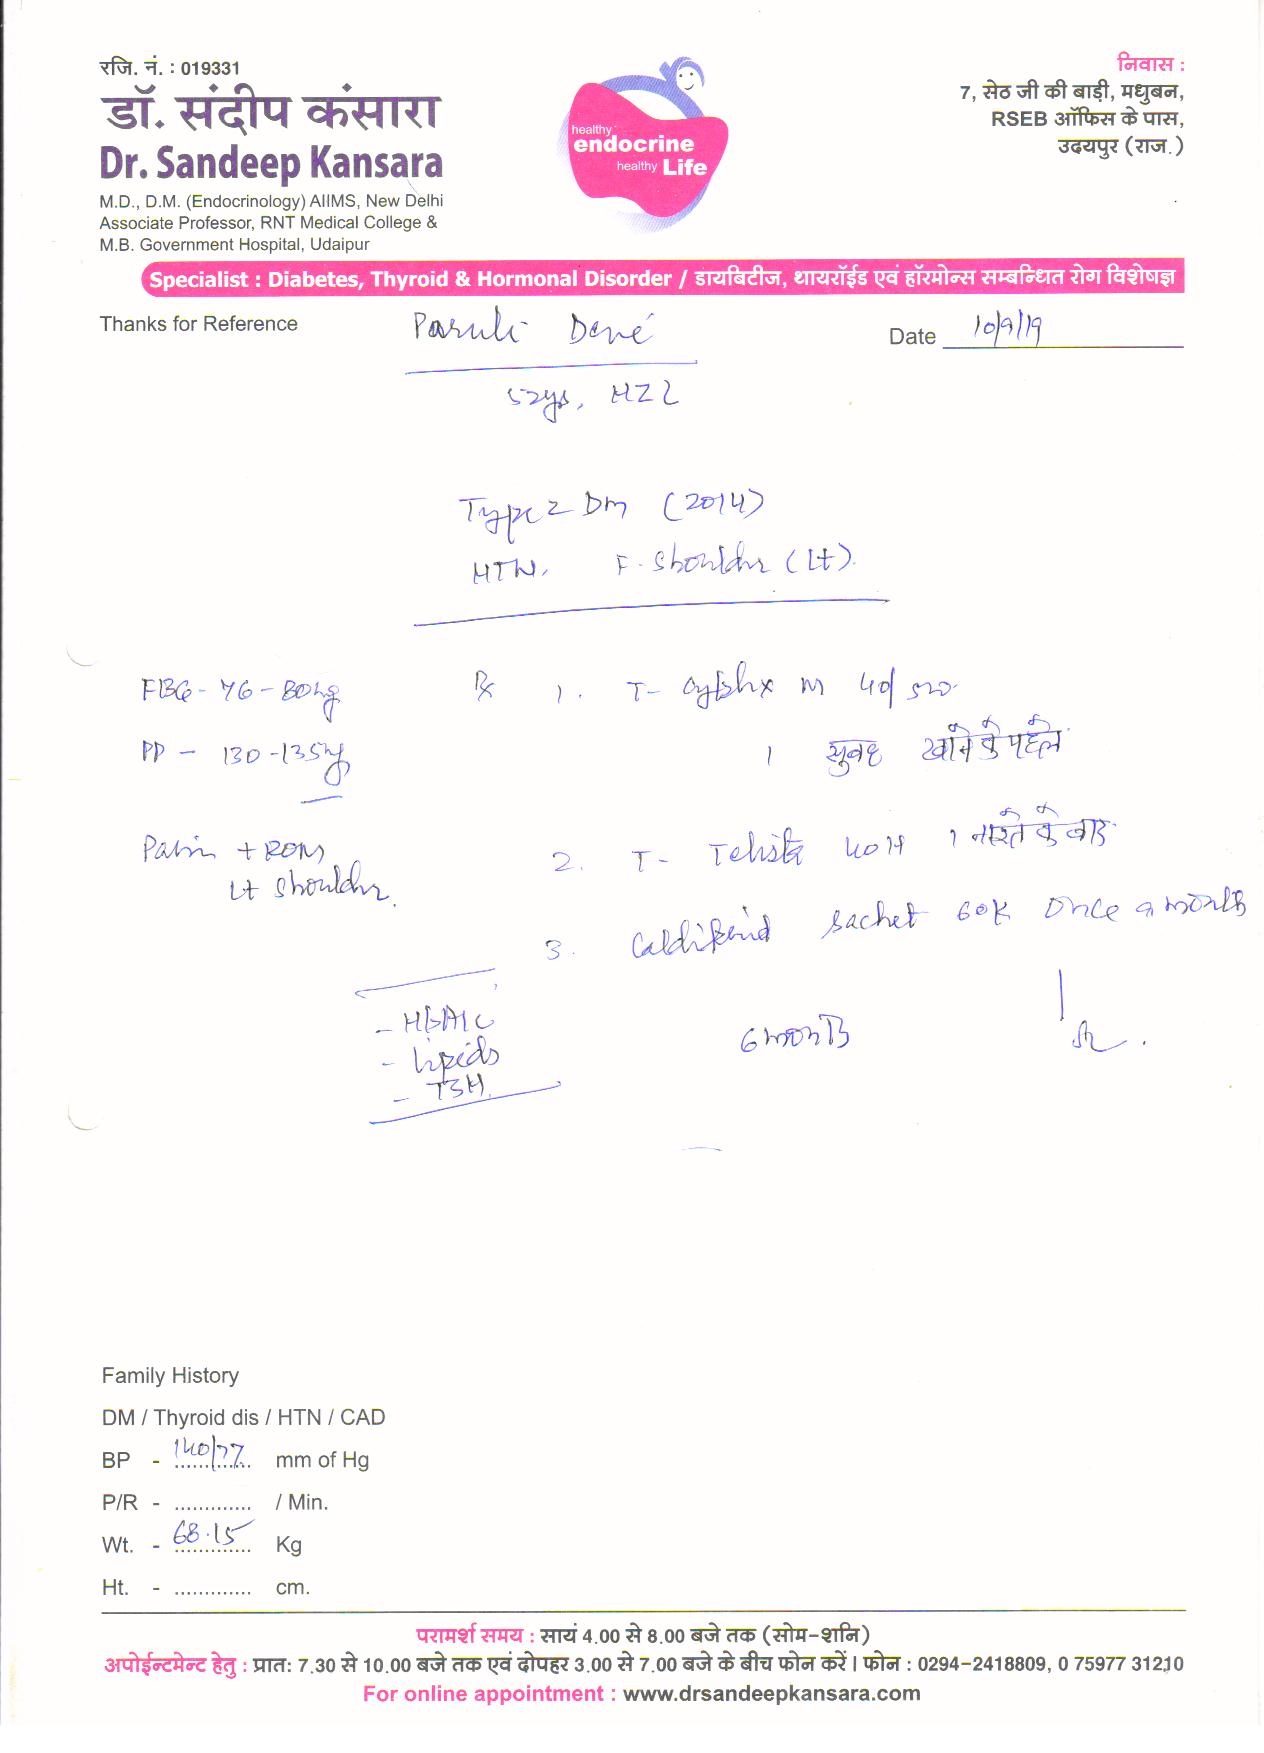 रजि. नं. : 019331
डॉ. संदीप कंसारा
Dr. Sandeep Kansara
M.D., D.M. (Endocrinology) AIIMS, New Delhi
Associate Professor, RNT Medical College &
M.B. Government Hospital, Udaipur
healthy
endocrine
healthy Life
निवास :
7, सेठ जी की बाड़ी, मधुबन,
RSEB ऑफिस के पास,
उदयपुर (राज.)
Specialist : Diabetes, Thyroid & Hormonal Disorder / डायबिटीज, थायरॉईड एवं हॉरमोन्स सम्बन्धित रोग विशेषज्ञ
Thanks for Reference
Date 10/9/19
52ys, HZL
Type 2 DM (2014)
HTN, F. Shoulder (Lt).
FBG - 76 - 80mg
PP - 130 - 135mg
Pain + ROM
Lt shoulder.
Rx 1. T- M 40/500
1 सुबह खाने से पहले
2. T- Telista 40H 1 नाश्ते के बाद
3. Caldikind sachet 60K Once a month
- HbA1c
- Lipids
- TSH
6 months
Family History
DM / Thyroid dis / HTN / CAD
BP - 140/77 mm of Hg
P/R - ............. / Min.
Wt. - 68.15 Kg
Ht. - ............. cm.
परामर्श समय : सायं 4.00 से 8.00 बजे तक (सोम-शनि)
अपोईन्टमेन्ट हेतु : प्रात: 7.30 से 10.00 बजे तक एवं दोपहर 3.00 से 7.00 बजे के बीच फोन करें। फोन : 0294-2418809, 0 75977 31210
For online appointment : www.drsandeepkansara.com